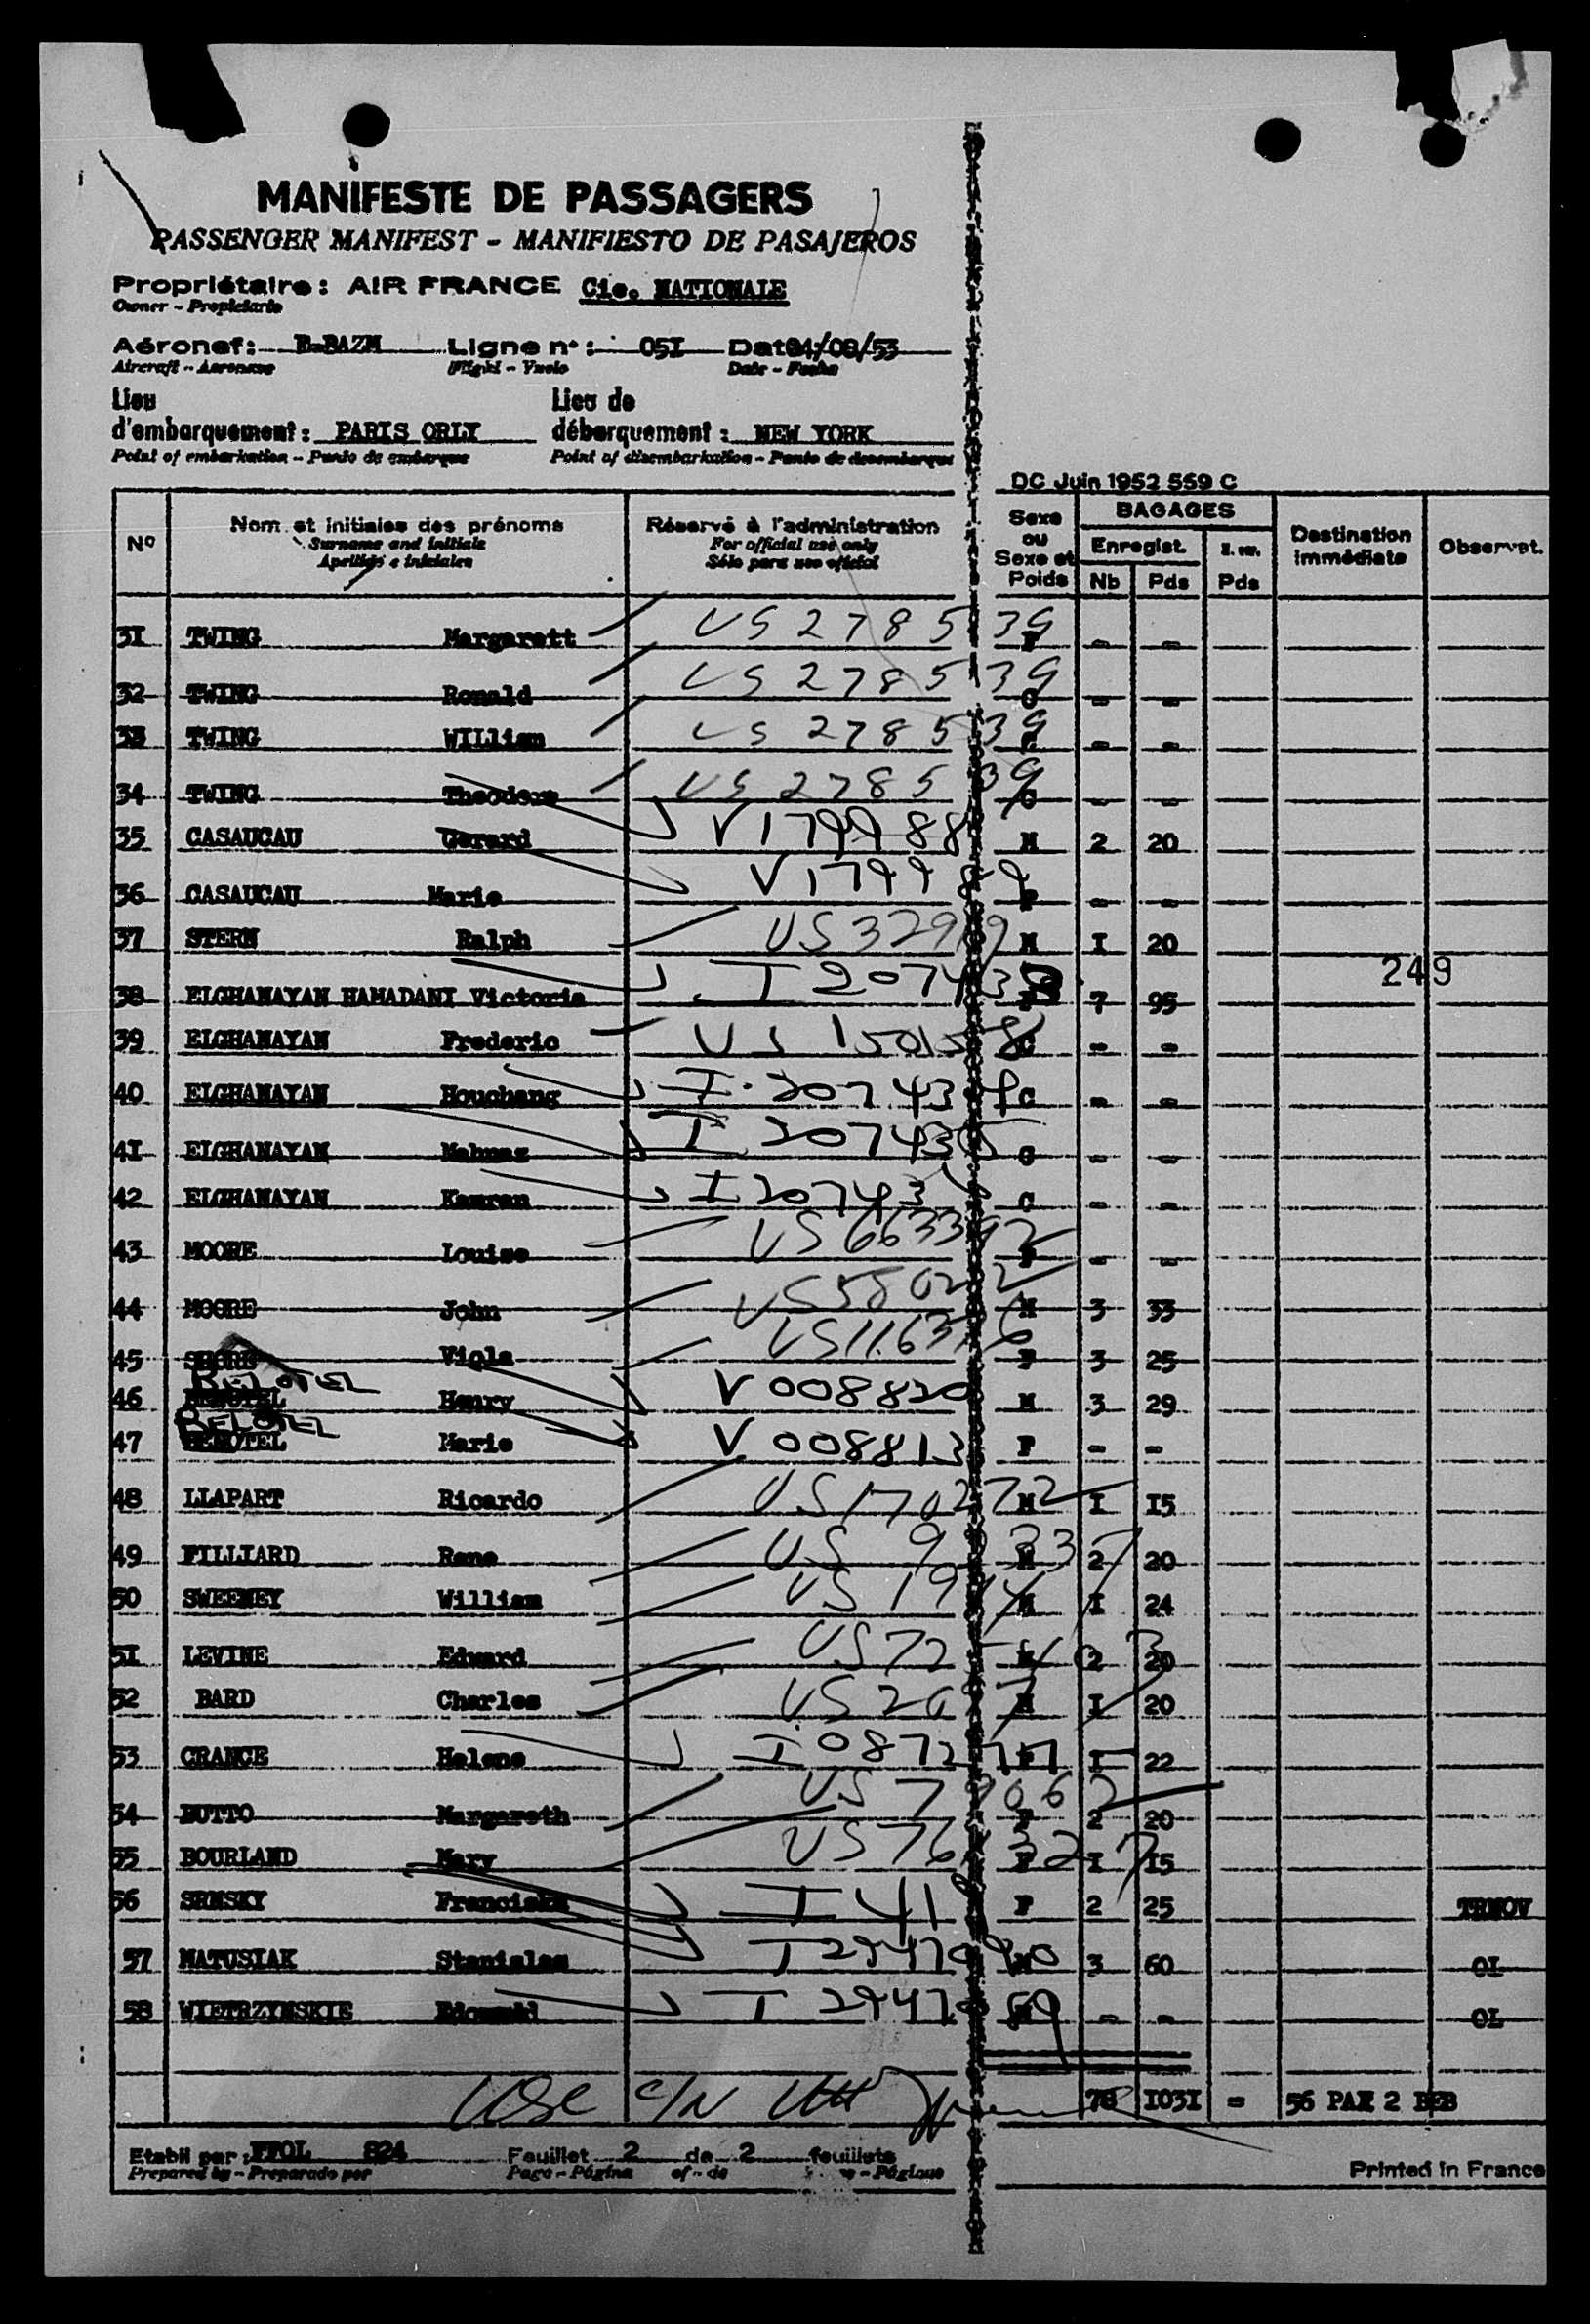 MANIFESTE DE PASSAGERS
PASSENGER MANIFEST - MANIFIESTO DE PASAJEROS
Propriétaire : AIR FRANCE Cie. NATIONALE
Owner - Propietario
Aéronef : F-BAZM Ligne n° : 05I Date 04/08/53
Aircraft - Aeronave Flight - Vuelo Date - Fecha
Lieu Lieu de
d'embarquement : PARIS ORLY débarquement : NEW YORK
Point of embarkation - Punto de embarque Point of disembarkation - Punto de desembarque
DC Juin 1952 559 C
N° Nom et initiales des prénoms Réservé à l'administration Sexe ou Sexe et Poids BAGAGES Destination immédiate Observat.
Surname and initials For official use only Enregist.
Apellido e iniciales Sólo para uso oficial Nb Pds Pds
3I TWING Margarett US 2785 39 F - -
32 TWING Ronald US 2785 39 C - -
33 TWING WILLiam US 2785 39 - -
34 TWING Theodore US 2785 39 C - -
35 CASAUCAU Gerard V179988 M 2 20
36 CASAUCAU Marie V179989 F - -
37 STERN Ralph US32919 M I 20
249
38 ELGHANAYAN HAMADANI Victoria I 207433 F 7 95
39 ELGHANAYAN Frederic US 150158 C - -
40 ELGHANAYAN Houchang I 207434 C - -
4I ELGHANAYAN Mahnaz I 207435 C - -
42 ELGHANAYAN Kamran I 20743 C - -
43 MOORE Louise US 663392 F - -
44 MOORE John US58022 M 3 33
45 SHORE Viola US116376 F 3 25
BELOTEL
46 Henry V 008820 M 3 29
BELOTEL
47 Marie V 008813 F - -
48 LLAPART Ricardo US170272 M I I5
49 FILLIARD Rene US 9 33 M 2 20
50 SWEENEY William US 19 M I 24
5I LEVINE Edward US72 M 2 20
52 BARD Charles US 20 M I 20
53 CRANCE Helene I 0872 F I 22
54 BUTTO Margareth US 7 9062 F 2 20
55 BOURLAND Mary US 76 327 F I I5
56 SRNSKY Franciska I 41 F 2 25 TRNOV
57 MATUSIAK Stanislas I 2947090 M 3 60 OL
58 WIETRZYNSKIE I 2947089 M - - OL
USC C/N
78 I03I - 56 PAX 2 BEB
Etabli par : FFOL 824 Feuillet 2 de 2 feuillets
Prepared by - Preparado por Page - Página of - de - Páginas
Printed in France